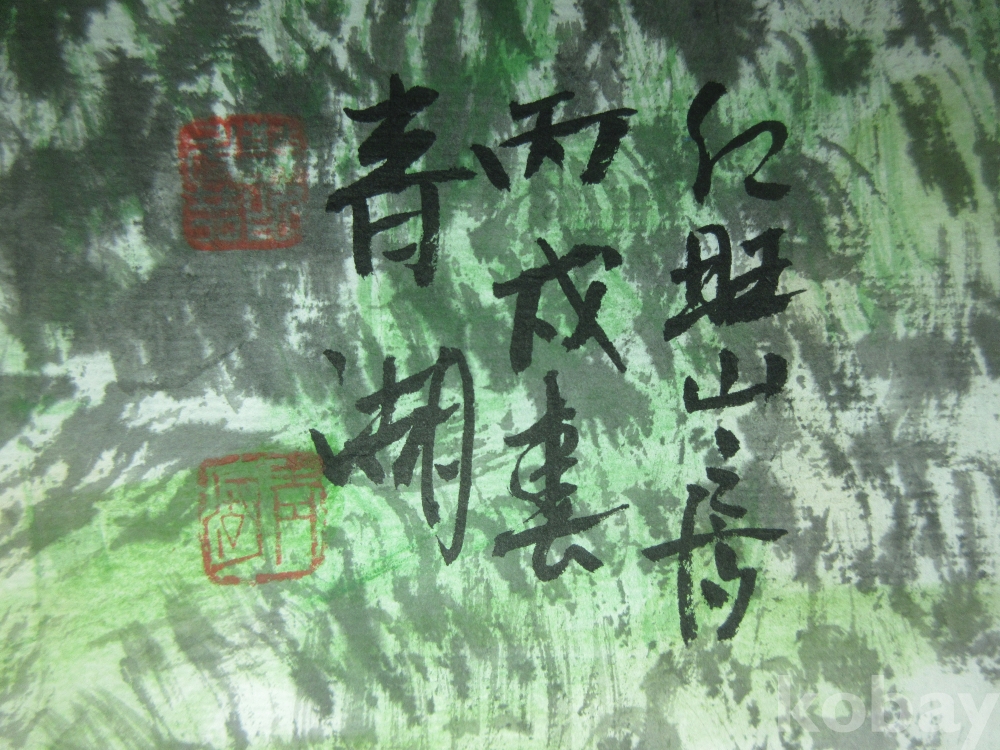 仁旺山房
丙戌
青湖
kobay